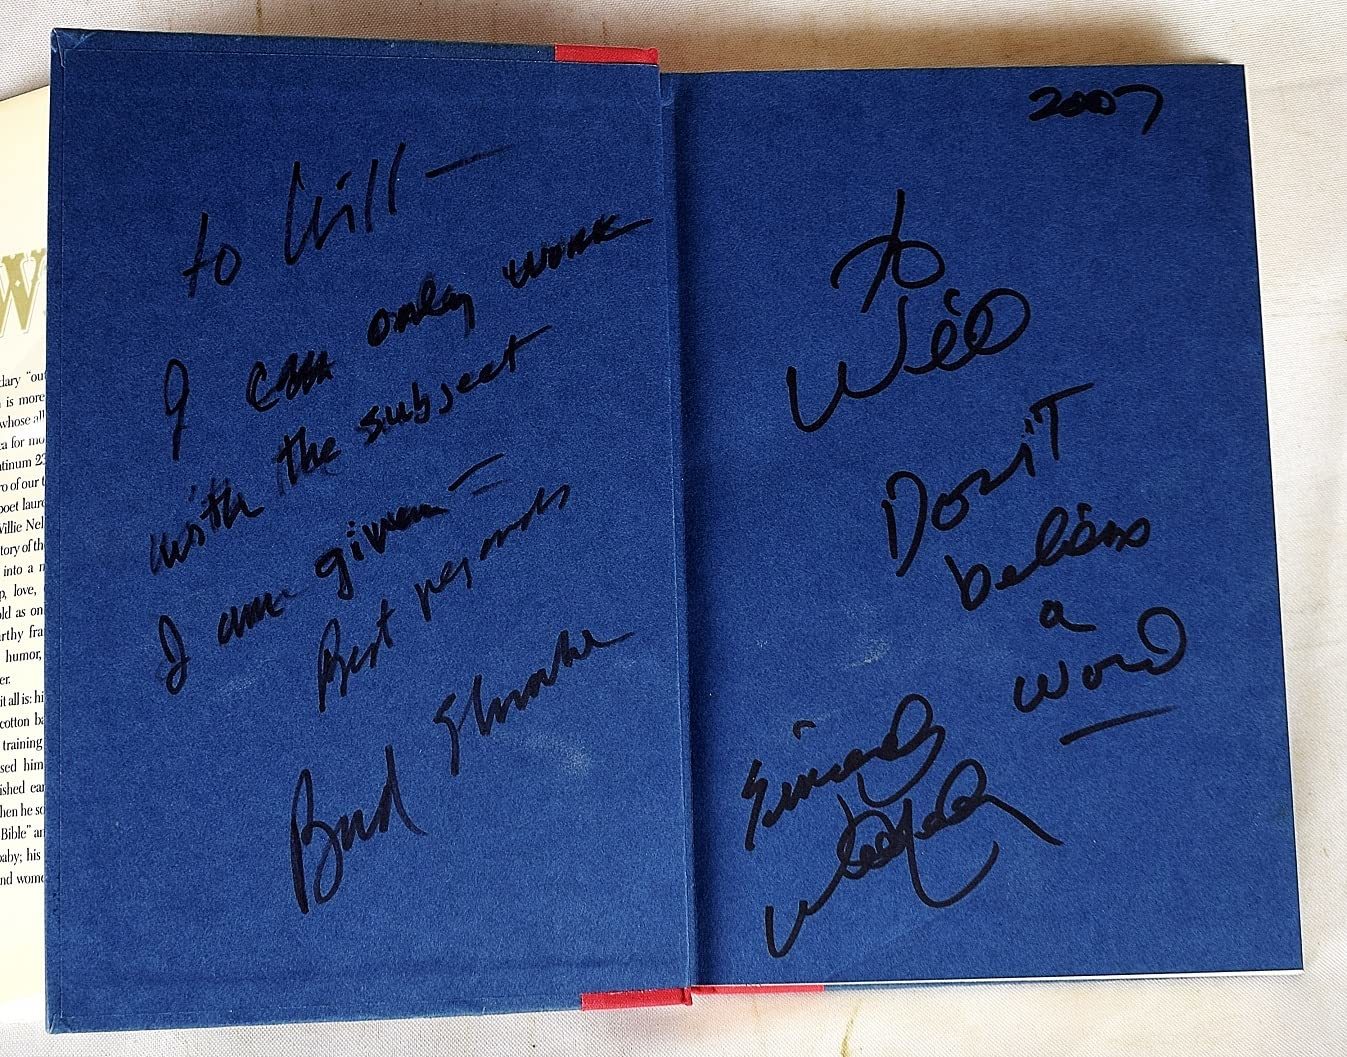 W
dary "out
is more
whose all
a for mo
tinum 23
o of our t
poet laure
Willie Nel
tory of th
into a n
p, love,
ld as on
rthy fra
humor,
er.
it all is: hi
cotton ba
training
sed him
ished ear
hen he so
Bible" an
baby; his
nd wome
to Will —
I can only work
with the subject
I am given —
Best regards
Bud Shrake
2007
To
Will
Don't
believe
a
word
Sincerely
Willie Nelson